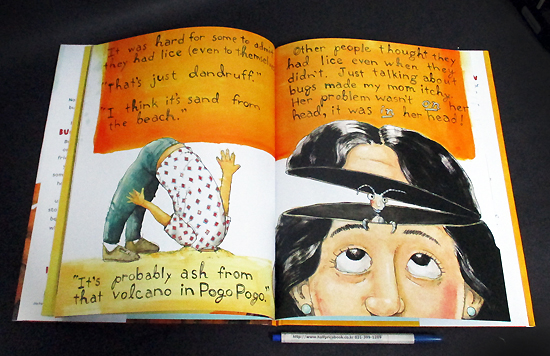 It was hard for some to admit
they had lice (even to themsel
"That's just dandruff."
"I think it's sand from
the beach."
"It's probably ash from
that volcano in Pogo Pogo."
Other people thought they
had lice even when they
didn't. Just talking about
bugs made my mom itchy.
Her problem wasn't on her
head, it was in her head!